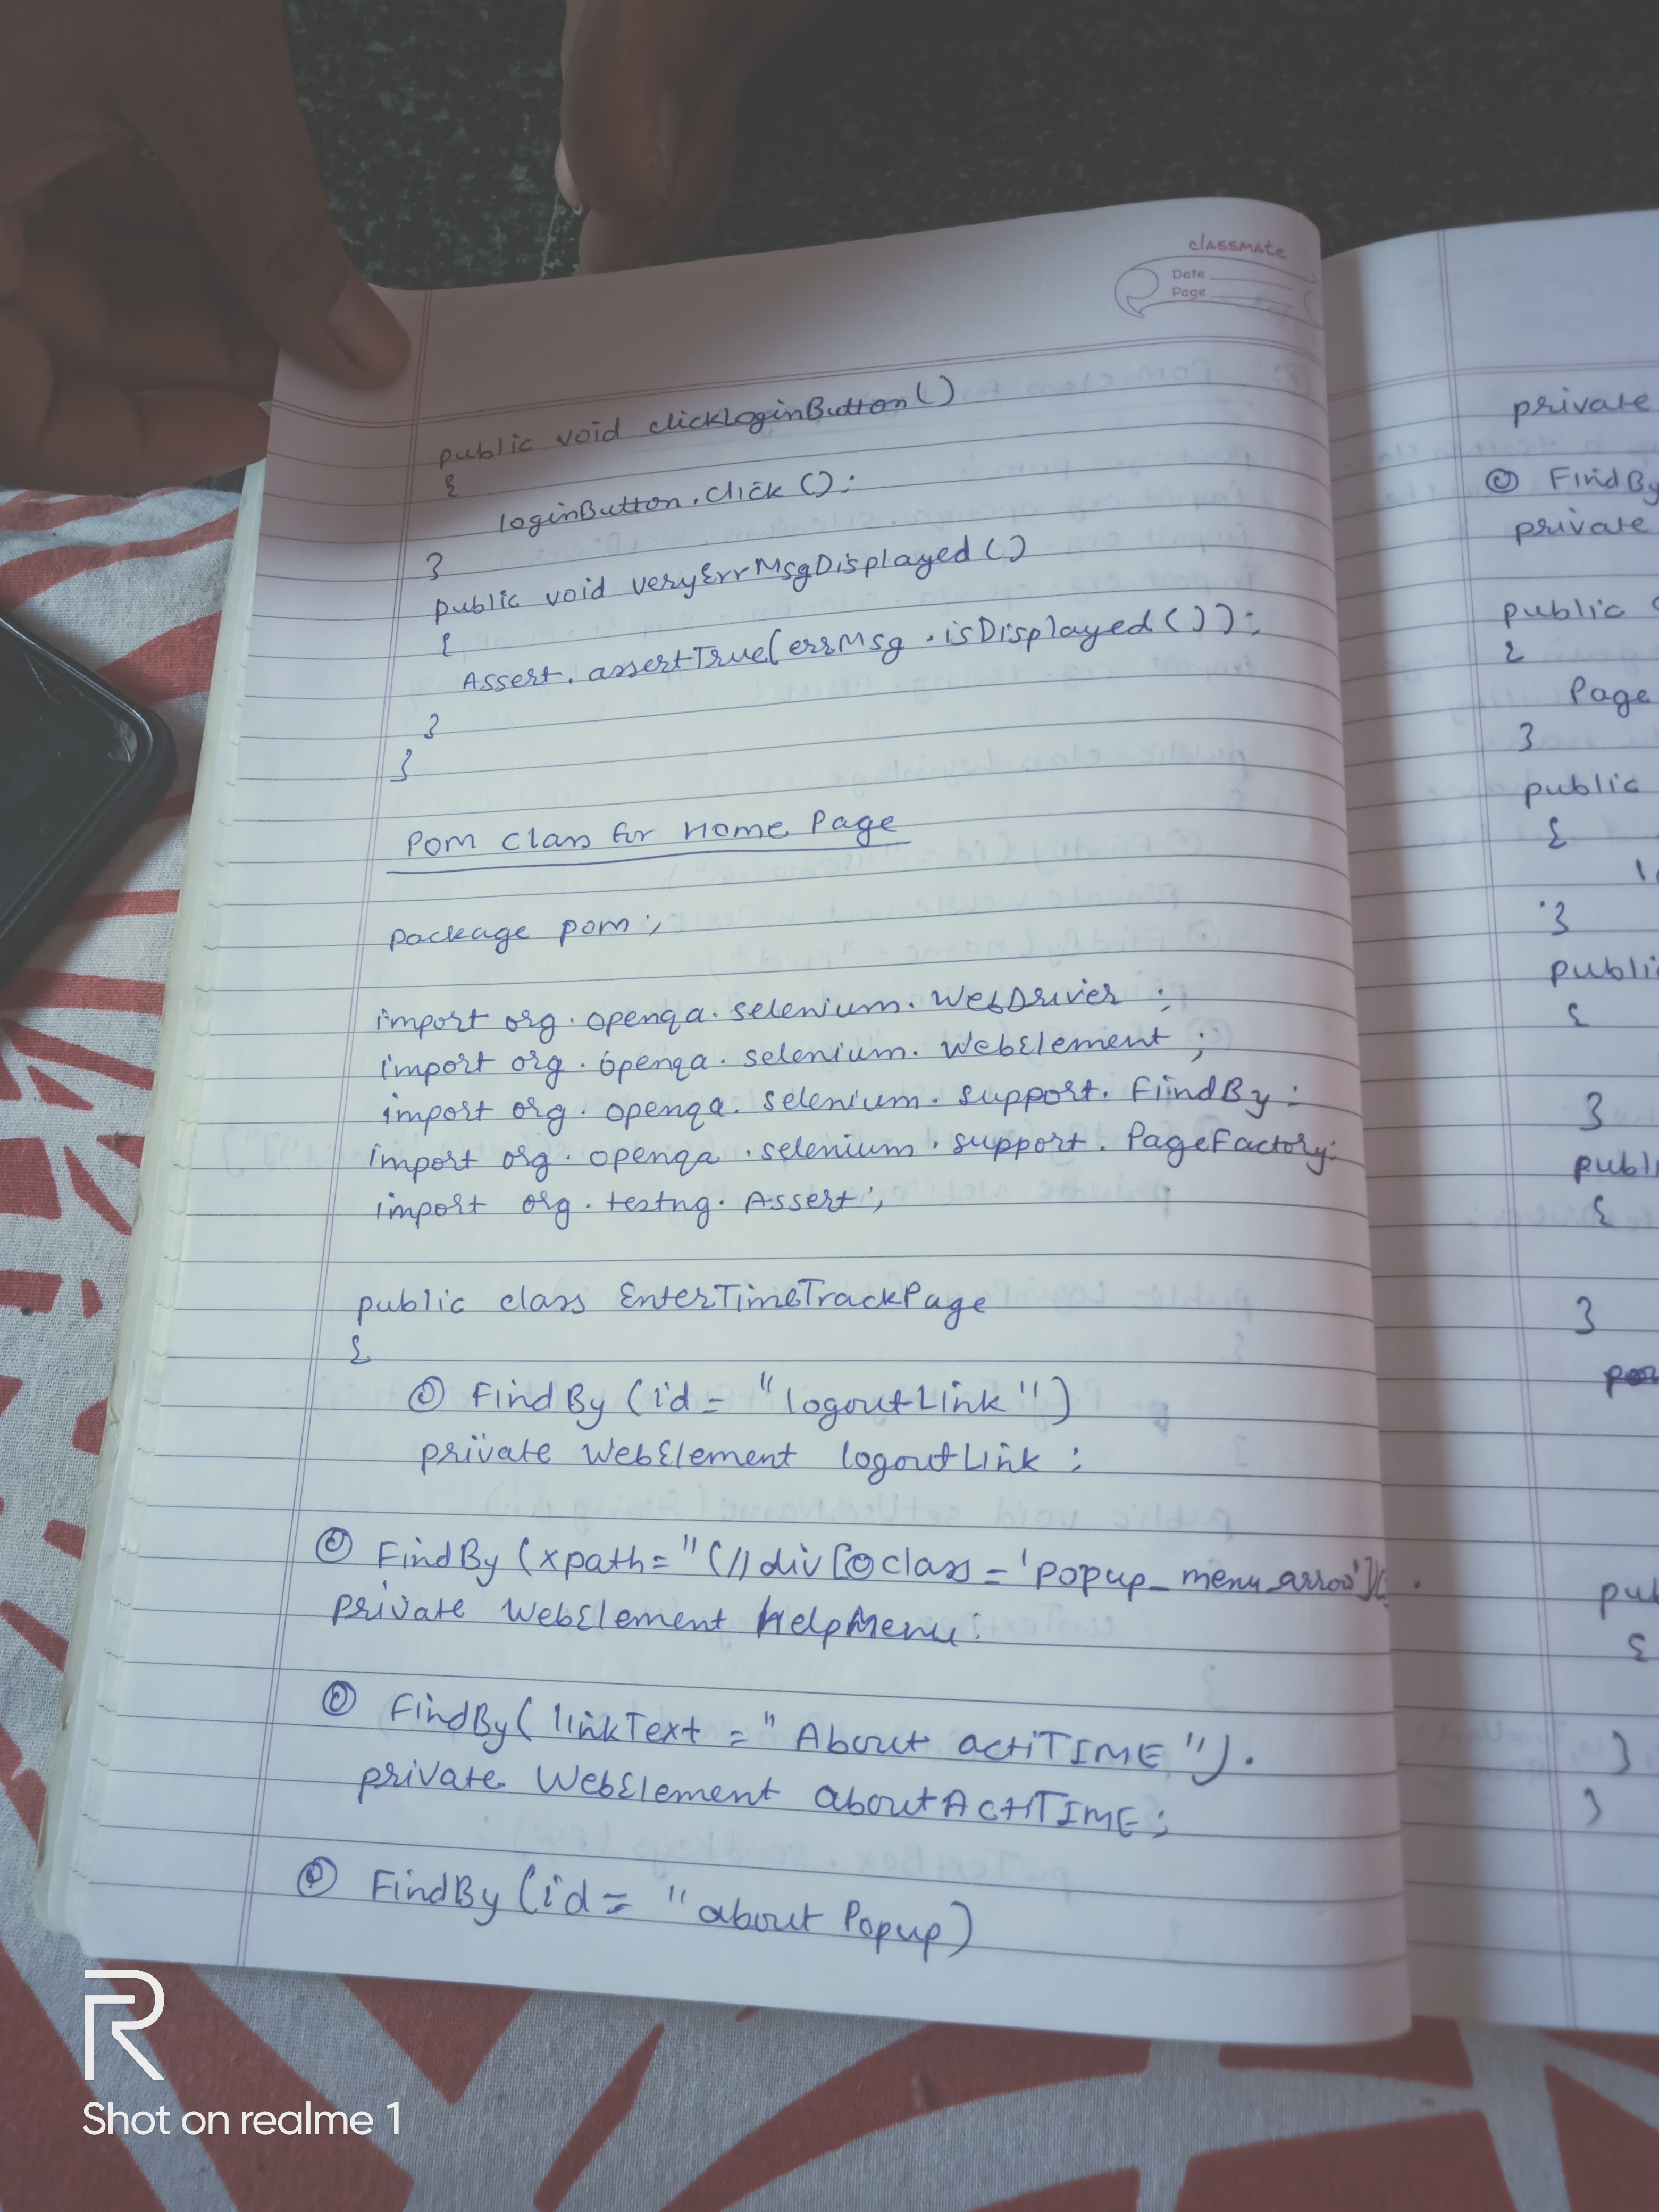 classmate
Date
Page
public void clickLoginButton()
{
loginButton.click();
}
public void veryErrMsgDisplayed()
{
Assert.assertTrue(errMsg.isDisplayed());
}
}
POM Class for Home Page
package pom;
import org.openqa.selenium.WebDrivier;
import org.openqa.selenium.WebElement;
import org.openqa.selenium.support.FindBy;
import org.openqa.selenium.support.PageFactory;
import org.testng.Assert;
public class EnterTimeTrackPage
{
@ FindBy (id = "logoutLink")
private WebElement logoutLink;
@ FindBy (xpath="(//div[@class='popup_menu_arrow'])[
private WebElement HelpMenu;
@ FindBy( linkText = "About actiTIME").
private WebElement aboutActiTIME;
@ FindBy (id = "about Popup)
private
@ FindBy
private
public
{
Page
}
public
{
}
public
{
}
publi
{
}
pub
{
}
}
R
Shot on realme 1